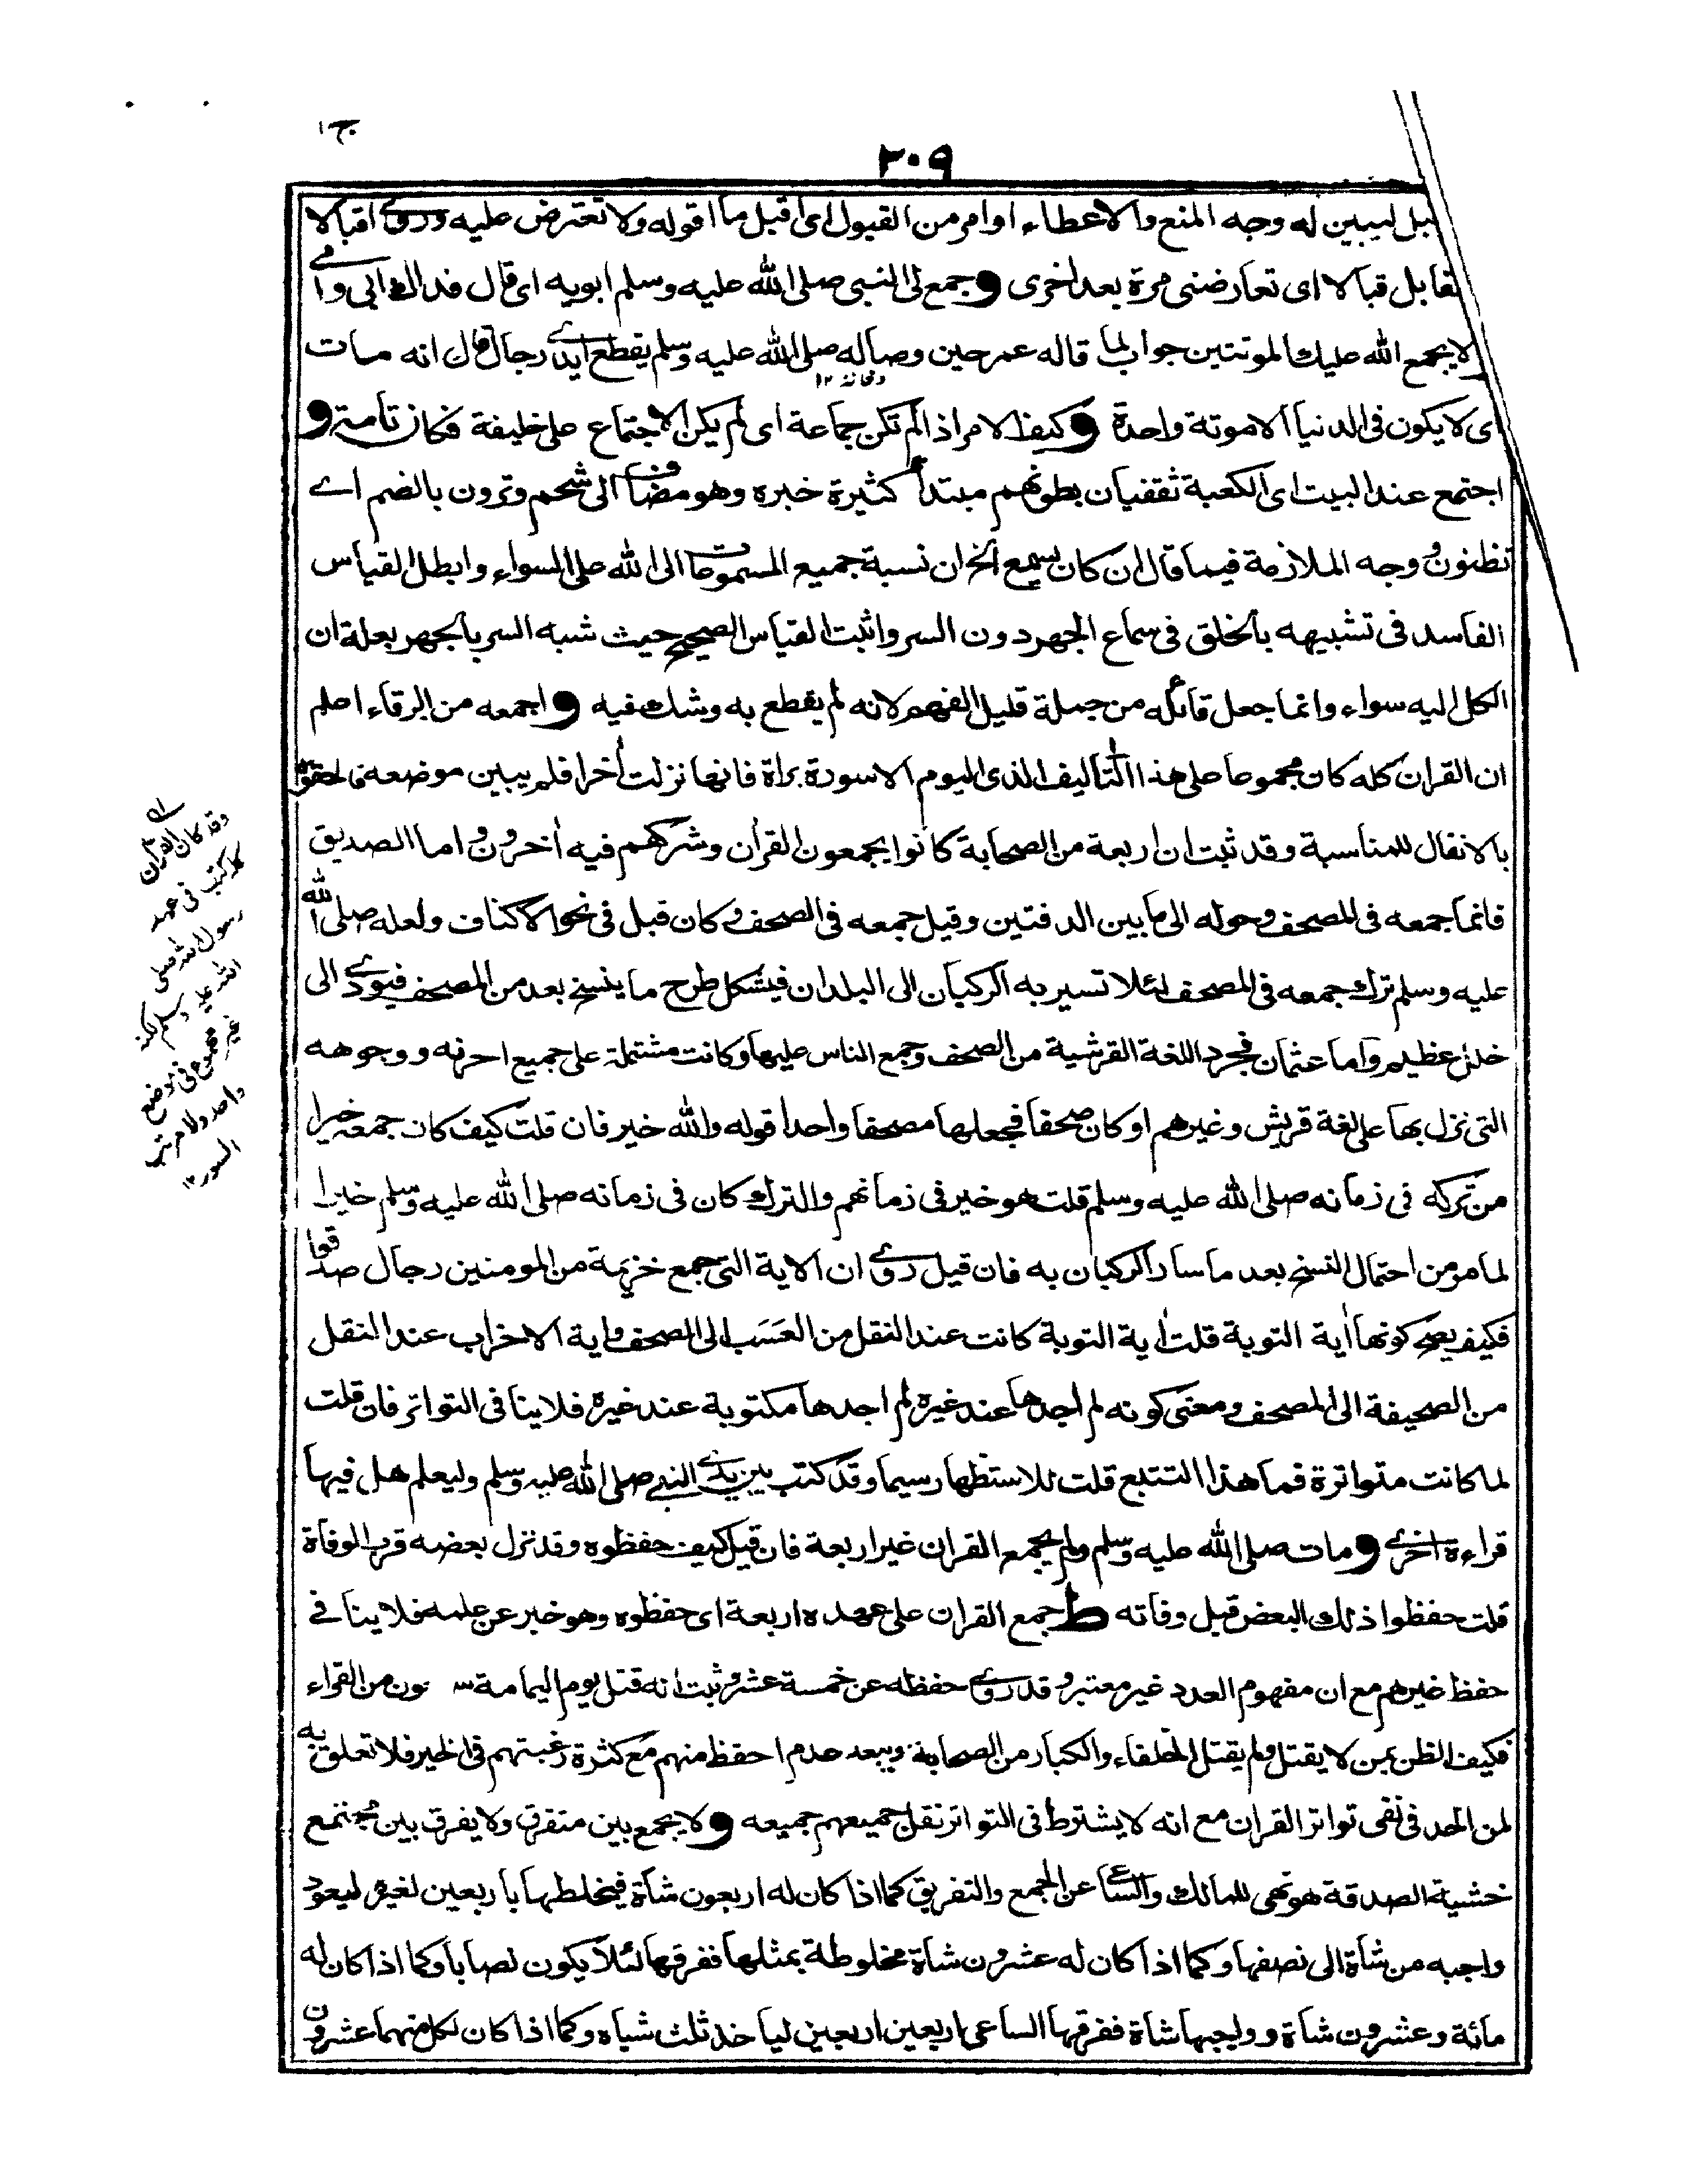 ج ١
٢٠٩
ليبين له وجه المنع والاعطاء او امر من القبول اى اقبل ما اقوله ولا تعترض عليه وروى اقبالا
تقابل قبالا اى تعارضنى مرة بعد اخرى و جمع لى النبى صلى الله عليه وسلم ابويه اى قال فداك ابى وامى
لا يجمع الله عليك الموتتين جواب لما قاله عمر حين وصاله صلى الله عليه وسلم يقطع ايدى رجال قال انه مات
اى لا يكون فى الدنيا الا موتة واحدة و كيف الامر اذا لم تكن جماعة اى لم يكن الاجتماع على خليفة فكان تامة و
اجتمع عند البيت اى الكعبة ثقفيان بطونهم مبتدأ كثيرة خبره وهو مضاف الى شحم وترون بالضم اے
تظنون ووجه الملازمة فيما قال ان كان يسمع الخ ان نسبة جميع المسموعات الى الله على السواء وابطل القياس
الفاسد فى تشبيهه بالخلق فى سماع الجهر دون السر واثبت القياس الصحيح حيث شبه السر بالجهر بعلة ان
الكل اليه سواء وانما جعل قائله من جملة قليل الفهم لانه لم يقطع به وشك فيه و اجمعه من الرقاع اعلم
ان القران كله كان مجموعا على هذا التاليف الذى اليوم الا سورة براة فانها نزلت أخرا فلم يبين موضعه فالحقوه
بالانفال للمناسبة وقد ثبت ان اربعة من الصحابة كانوا يجمعون القرأن وشركهم فيه أخرون واما الصديق
فانما جمعه فى المصحف وحوله الى ما بين الدفتين وقيل جمعه فى الصحف وكان قبل فى نحو الاكتاف ولعله صلى الله
عليه وسلم ترك جمعه فى المصحف لئلا تسير به الركبان الى البلدان فيشكل طرح ما ينسخ بعد من المصحف فيودى الى
خلل عظيم واما عثمان فجرد اللغة القرشية من الصحف وجمع الناس عليها وكانت مشتملة على جميع احرفه ووجوهه
التى نزل بها على لغة قريش وغيرهم او كان صحفا فجعلها مصحفا واحدا قوله والله خير فان قلت كيف كان جمعه خيرا
من تركه فى زمانه صلى الله عليه وسلم قلت هو خير فى زمانهم والترك كان فى زمانه صلى الله عليه وسلم خيرا
لما مر من احتمال النسخ بعد ما سار الركبان به فان قيل روى ان الاية التى جمع خزيمة من المومنين رجال صدقوا
فكيف يصح كونها أية التوبة قلت أية التوبة كانت عند النقل من العَسَب الى الصحف وأية الاحزاب عند النقل
من الصحيفة الى المصحف ومعنى كونه لم اجدها عند غيره لم اجدها مكتوبة عند غيره فلا ينافى التواتر فان قلت
لما كانت متواترة فما هذا التتبع قلت للاستظهار سيما وقد كتب بين يدى النبى صلى الله عليه وسلم وليعلم هل فيها
قراءة اخرى و مات صلى الله عليه وسلم ولم يجمع القران غير اربعة فان قيل كيف حفظوه وقد نزل بعضه قرب الوفاة
قلت حفظوا ذلك البعض قبل وفاته ط جمع القران على عهده اربعة اى حفظوه وهو خبر عن علمه فلا ينافى
حفظ غيرهم مع ان مفهوم العدد غير معتبر وقد روى حفظه عن خمسة عشر وثبت انه قتل يوم اليمامة سبعون من القراء
فكيف الظن بمن لا يقتل ولم يقتل الخلفاء والكبار من الصحابة ويبعد عدم احفظ منهم مع كثرة رغبتهم فى الخير فلا تعلق به
لمن الحد فى نفى تواتر القران مع انه لا يشترط فى التواتر نقل جميعهم جميعه و لا يجمع بين متفرق ولا يفرق بين مجتمع
خشية الصدقة هو نهى للمالك والساعى عن الجمع والتفريق كما اذا كان له اربعون شاة فيخلطها باربعين لغيره ليعود
واجبه من شاة الى نصفها وكما اذا كان له عشرون شاة مخلوطة بمثلها ففرقها لئلا يكون نصابا وكما اذا كان له
مائة وعشرون شاة وواجبها شاة ففرقها الساعى اربعين اربعين لياخذ ثلث شياه وكما اذا كان لكل منهما عشرون
وقد كان القرأن
كله كتب فى عهد
رسول الله صلى
الله عليه وسلم لكنه
غير مجموع فى موضع
واحد ولا مرتب
السور ١٢